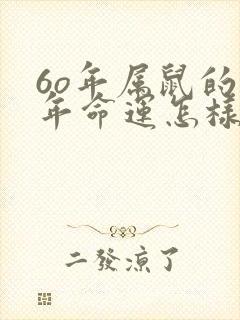 60年属鼠的
年命运怎样
二發涼了